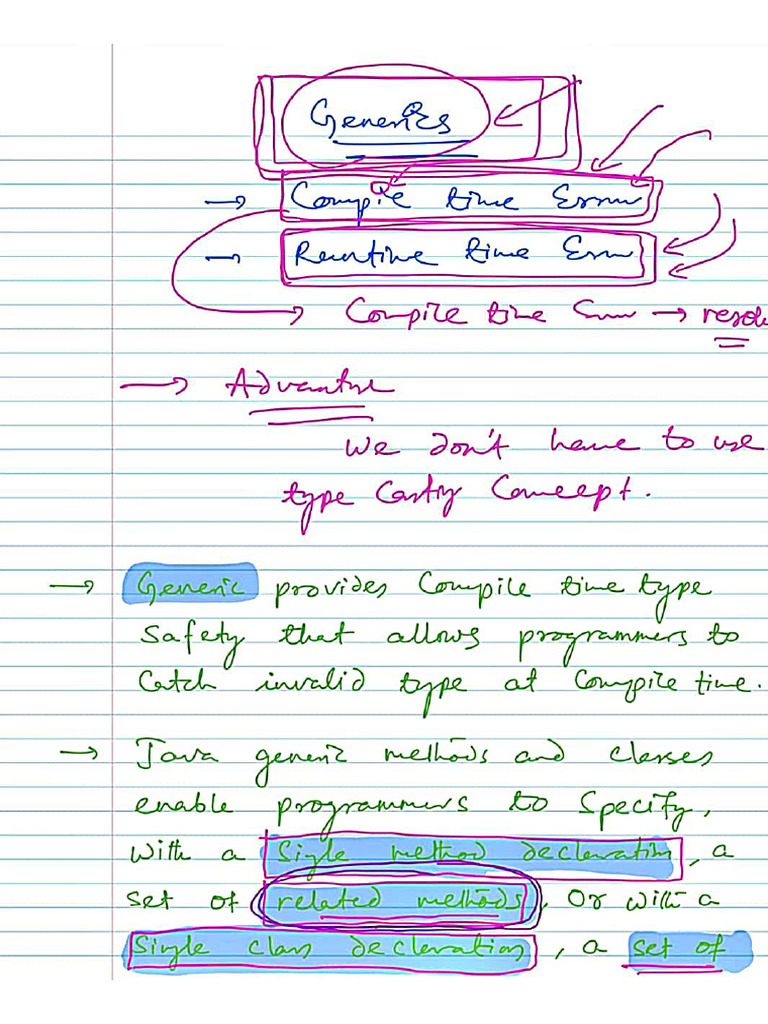 Generics
→ Compile time Error
→ Runtime time Error
→ Compile time Error → resol
→ Advantage
We don't have to use
type Casting Concept.
→ Generic provides Compile time type
Safety that allows programmers to
Catch invalid type at Compile time.
→ Java generic methods and classes
enable programmers to Specify,
With a Single method declaration, a
set of related methods, Or with a
Single class declaration, a set of